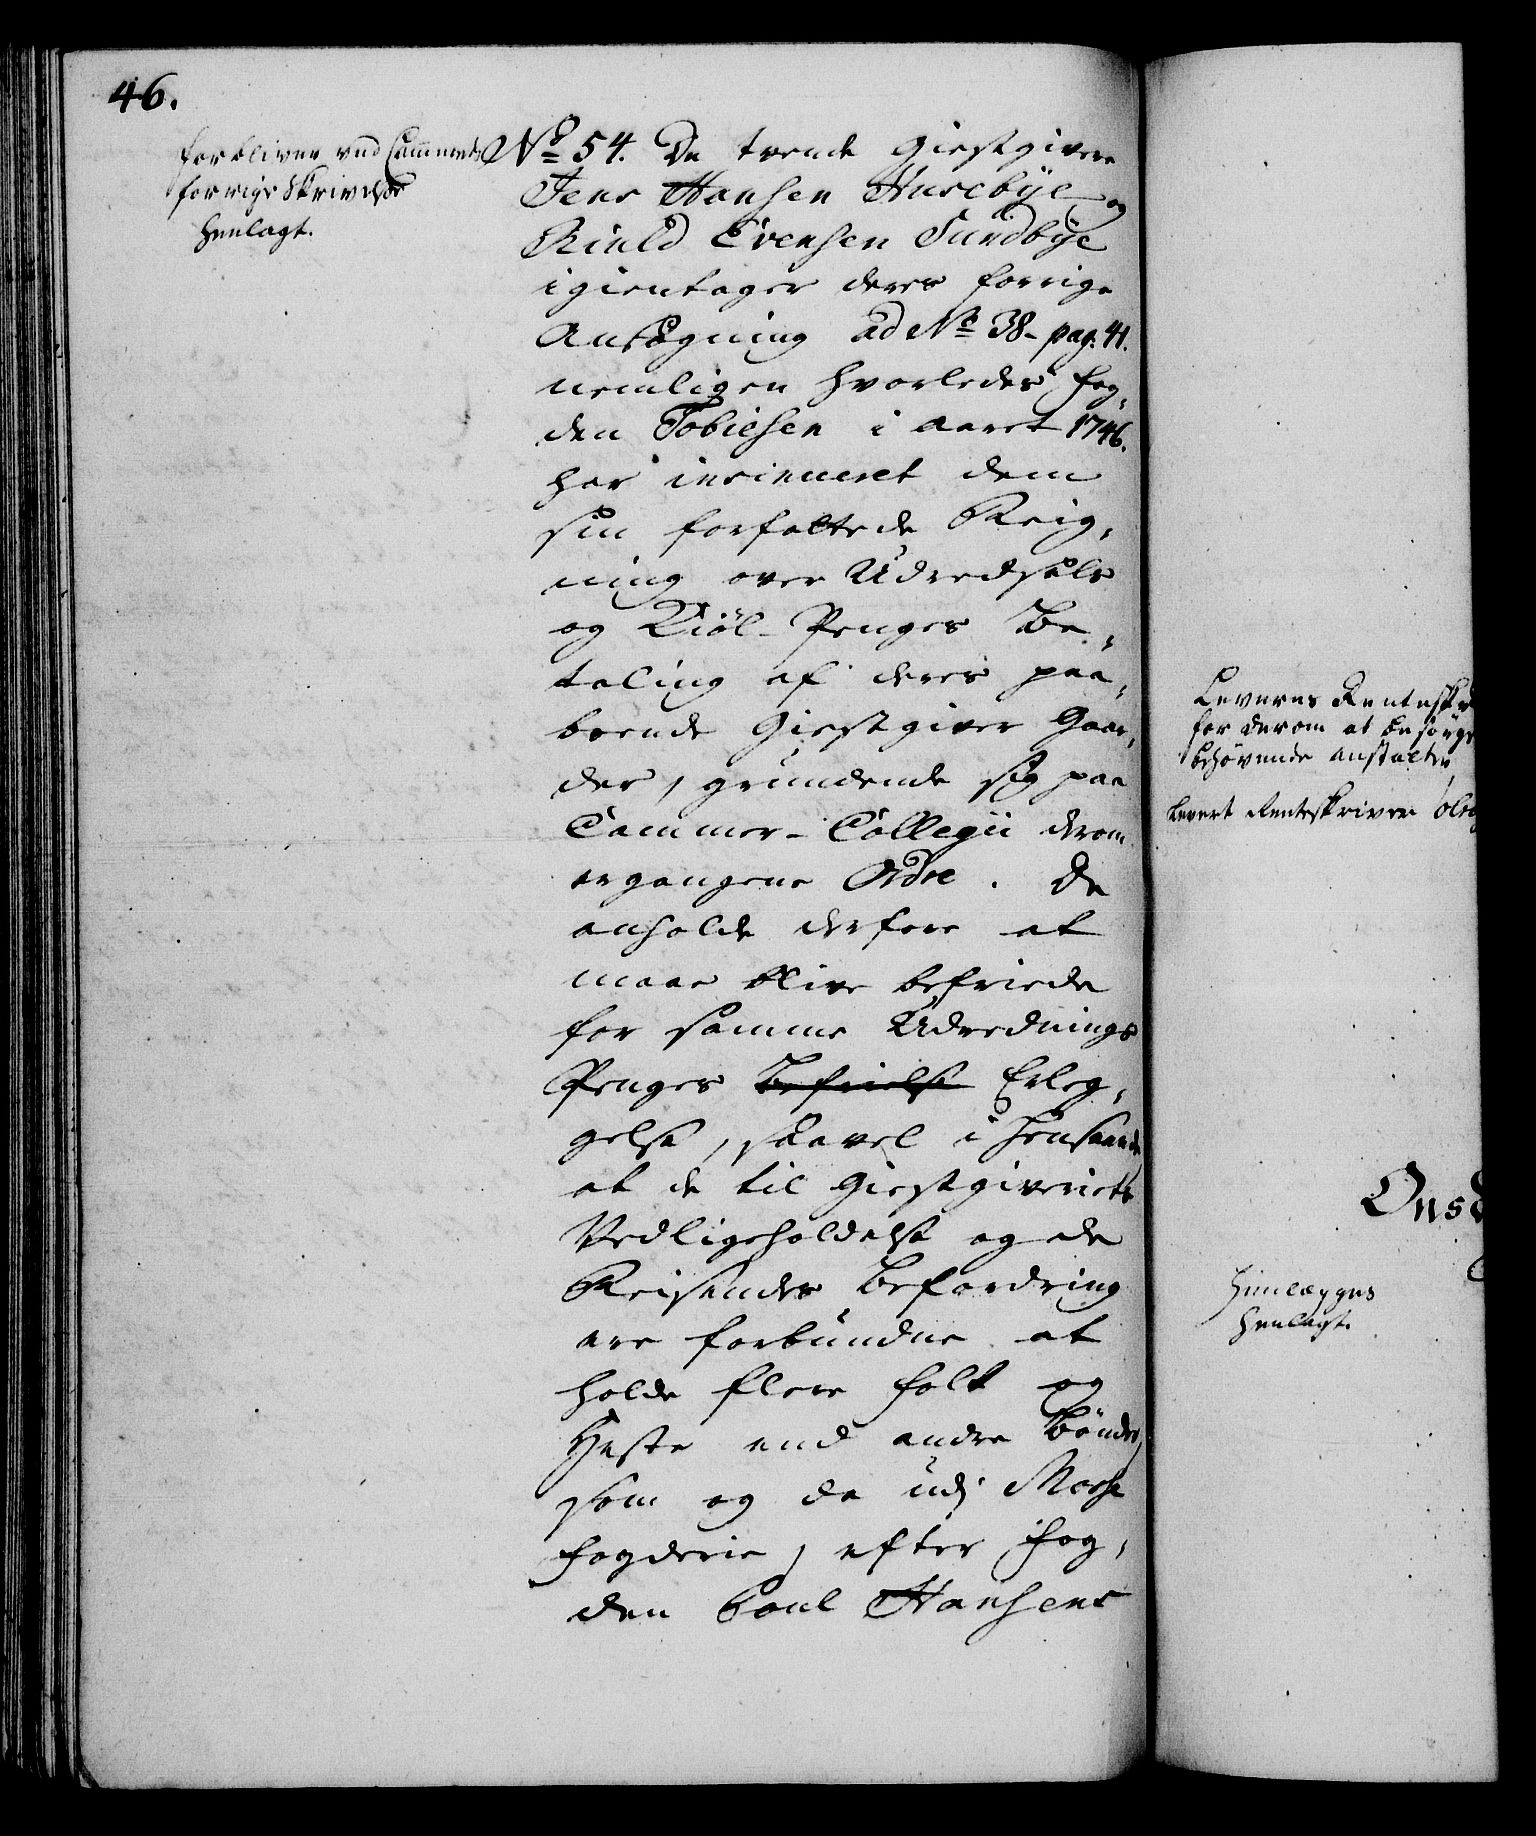 46.
forbliver ved Cammerets
forrige Skrivelse
Henlagt.
No 54. De tvende Giestgivere
Jens Hansen Husebÿe og
Kield Evensen Sundbÿe
igientager deres forrige
Ansøgning ad No 38 - pag: 41.
nemligen hvorledes Fog-
den Tobiesen i aaret 1746.
har insinueret dem
sin forfattede Reig-
ning over Udredsels
og Kiöl-Penges Be-
taling af deres paa-
boende Giestgiver Gaar-
der, grundende sig paa
Cammer-Collegii derom
ergangene Ordre. De
anholde derfore at
maae blive befriede
for samme Udrednings
Penges Befrielse Erleg-
gelse, saavel i Henseende
at de til Giestgiveriets
Vedligeholdelse og de
Reisendes Befordring
ere forbundne at
holde flere Folk og
Heste end andre Bönder,
som og da udj Mosse
Fogderie, efter Fog-
den Poul Hansens
Leveres Renteskr
for derom at besørge
behøvende Anstalter,
Levert Renteskriver
Onsd
Hinlægges
Henlagt.